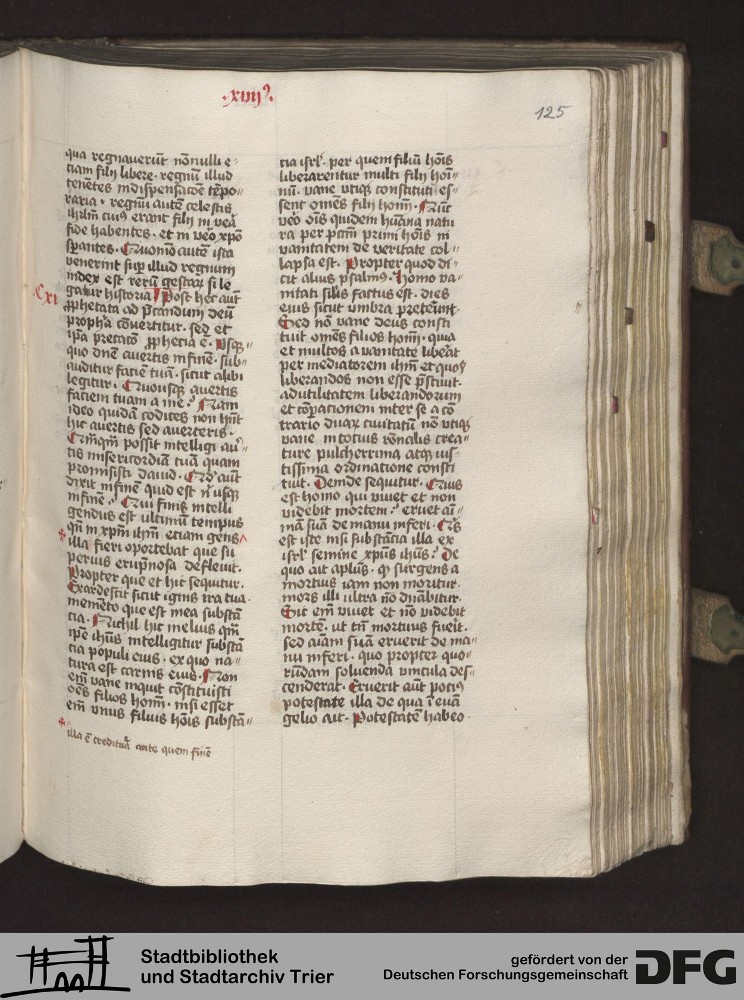 .xiiij⁹.
125
qua regnaverūt nōnulli e-
ciam filij libere. regnū illud
tenētes in dispensacōe tēpo-
raria. regnū autē celestis
ihrlm̄ cuiꝰ erant filij in vea
fide habentes. et in vēo xpō
spantes. Quomō autē ista
venerint sup illud regnum
index est rerū gestaꝝ si le-
gatur historia Post hec aut
.C xi
ꝓphetata ad p̄candum deū
propha cōvertitur. sed et
ipa precatō ꝓphecia ē. Vsq̄-
quo dn̄e avertis in finē. sub-
auditur faciē tuā. sicut alibi
legitur. Quousqꝫ avertis
faciem tuam a me? Nam
ideo quidā codices non hn̄t
hic avertis sed averteris.
Quāqm̄ possit intelligi au͛-
tis misericordiā tuā quam
promisisti dauid. Qd̓ aut
dixit in finē quid est n̓ vsqꝫ
in finē? Qui finis intelli
gendus est ultimū tempus
qn̄ in xpm̄ ihm̄ etiam gens
illa fieri oportebat que su
perius erūpnosa deflevit.
Propter que et hic sequitur.
Exardescit sicut ignis ira tua.
memēto que est mea substā
tia. Nichil hic melius qm̄
ipē ihūs intelligitur substā
cia populi eius. ex quo na-
tura est carnis eius. Non
em̄ vane inquit cōstituisti
oēs filios hom̄. nisi esset
em̄ vnus filius hōis substā-
illa ē creditura ante quem finē
cia isrl̓. per quem filiū hōis
liberarentur multi filij hoī-
nū. vane vtiqꝫ constituti es-
sent om̄es filij hom̄. Nūc
vēo oīs quidem hūana natu
ra per pctm̄ primi hōis in
vanitatem de veritate col-
lapsa est. Propter quod di-
cit alius psalmꝰ. Homo va-
nitati silis factus est. dies
eius sicut vmbra pretereūt.
Sed nō vane deus consti
tuit om̄es filios hom̄. quia
et multos a vanitate liberat
per mediatorem ihm̄ et quos
liberandos non esse p̄scivit.
ad utilitatem liberandorum
et cōpacionem inter se a cō
trario duaꝝ civitatū nō vtiqꝫ
vane in totius rōnalis crea-
ture pulcherrima atqꝫ ius-
tissima ordinatione consti
tuit. Deinde sequitur. Quis
est homo qui vivet et non
videbit mortem? eruet ai-
mā suā de manu inferi. Qis
est iste nisi substācia illa ex
isrl̓ semine xpūs ihūs? De
quo ait aplūs. qꝫ surgens a
mortuis iam non moritur.
mors illi ultra nō dn̄abitur.
Sic em̄ vivet et nō videbit
mortē. ut tn̄ mortuus fuerit.
sed aīam suā eruerit de ma-
nu inferi. quo propter quo-
rūdam solvenda vincula des-
cenderat. Eruerit aūt potiꝰ
potestate illa de qua ī evā
gelio ait. Potestatē habeo
Stadtbibliothek
und Stadtarchiv Trier
gefördert von der
Deutschen Forschungsgemeinschaft
DFG